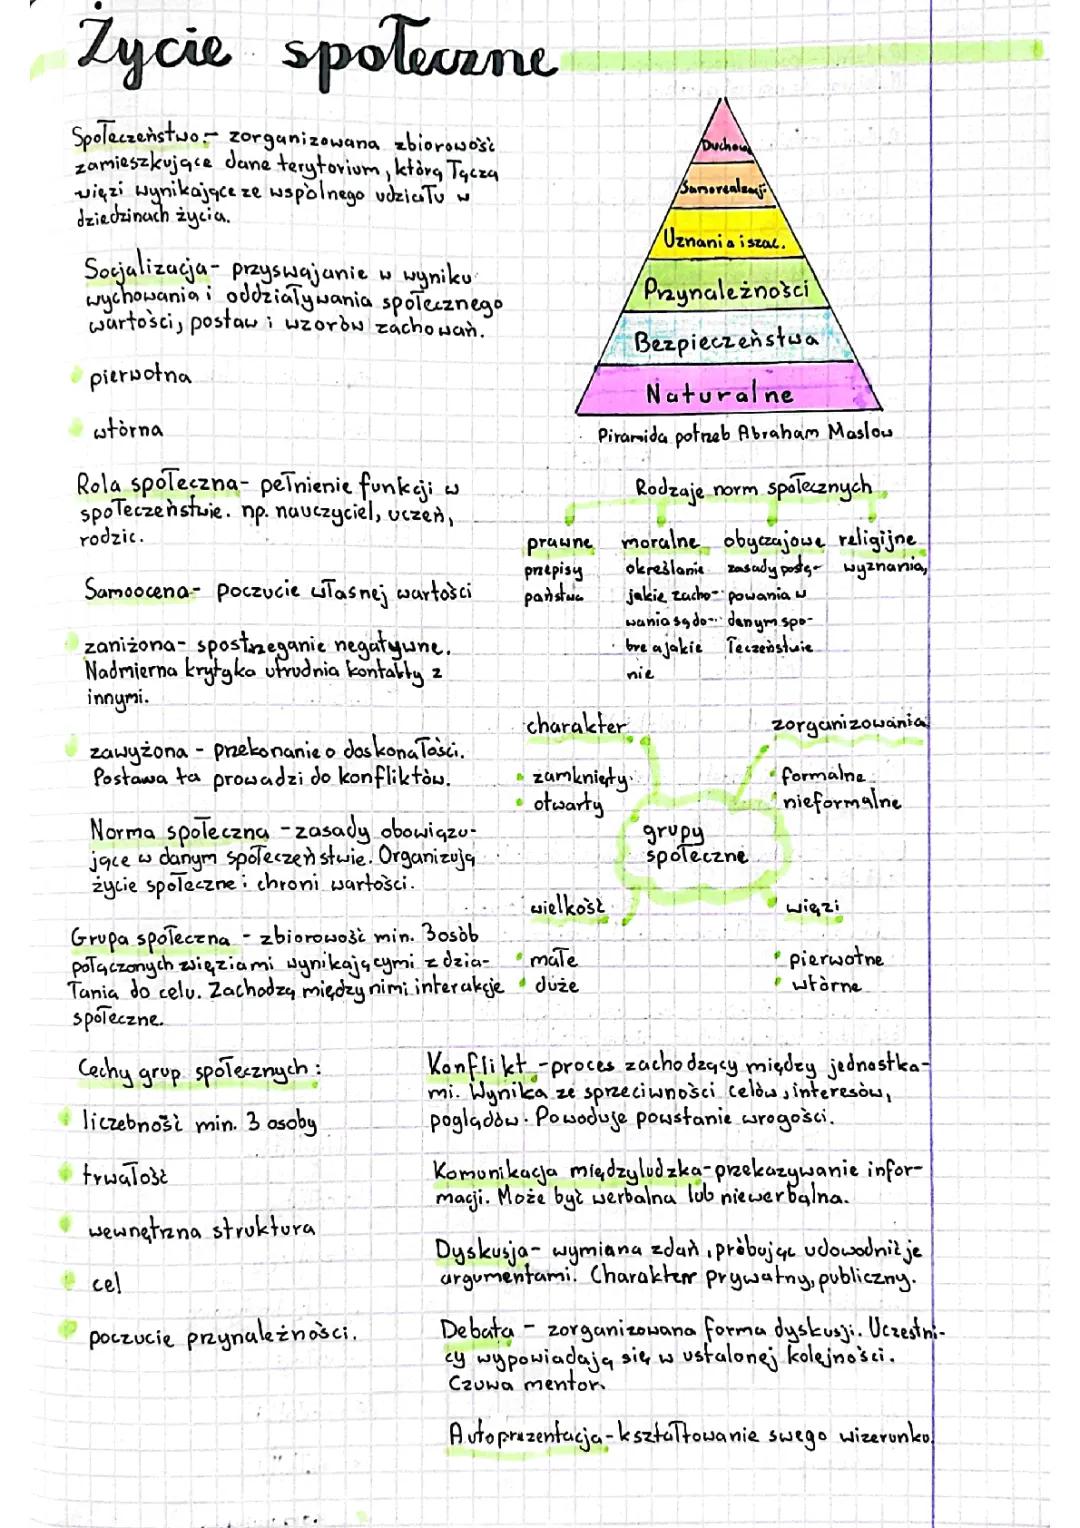 Życie społeczne
Społeczeństwo - zorganizowana zbiorowość
zamieszkujące dane terytorium, którą łączą
więzi wynikające ze wspólnego udziału w
dziedzinach życia.
Socjalizacja- przyswajanie w wyniku
wychowania i oddziaływania społecznego
wartości, postaw i wzorów zachowań.
pierwotna
wtórna
Rola społeczna- pełnienie funkcji w
społeczeństwie. np. nauczyciel, uczeń,
rodzic.
Samoocena- poczucie własnej wartości
zaniżona- spostrzeganie negatywne.
Nadmierna krytyka utrudnia kontakty z
innymi.
zawyżona - przekonanie o doskonałości.
Postawa ta prowadzi do konfliktów.
Norma społeczna - zasady obowiązu-
jące w danym społeczeństwie. Organizują
życie społeczne i chroni wartości.
Grupa społeczna - zbiorowość min. 3 osób
połączonych więziami wynikającymi z dzia-
łania do celu. Zachodzą między nimi interakcje
społeczne.
Cechy grup społecznych:
liczebność min. 3 osoby
trwałość
wewnętrzna struktura
cel
poczucie przynależności.
Duchowe
Samorealizacji
Uznania i szac.
Przynależności
Bezpieczeństwa
Naturalne
Piramida potrzeb Abraham Maslow
Rodzaje norm społecznych
prawne
przepisy
państwa
moralne
określanie
jakie zacho-
wania są do-
bre a jakie
nie
obyczajowe
zasady postę-
powania w
danym spo-
łeczeństwie
religijne
wyznania,
charakter
zamknięty
otwarty
zorganizowania
formalne
nieformalne
grupy
społeczne
wielkość
małe
duże
więzi
pierwotne
wtórne
Konflikt - proces zachodzący między jednostka-
mi. Wynika ze sprzeciwności celów, interesów,
poglądów. Powoduje powstanie wrogości.
Komunikacja międzyludzka- przekazywanie infor-
macji. Może być werbalna lub niewerbalna.
Dyskusja- wymiana zdań, próbując udowodnić je
argumentami. Charakter prywatny, publiczny.
Debata - zorganizowana forma dyskusji. Uczestni-
cy wypowiadają się w ustalonej kolejności.
Czuwa mentor.
Autoprezentacja- kształtowanie swego wizerunku.